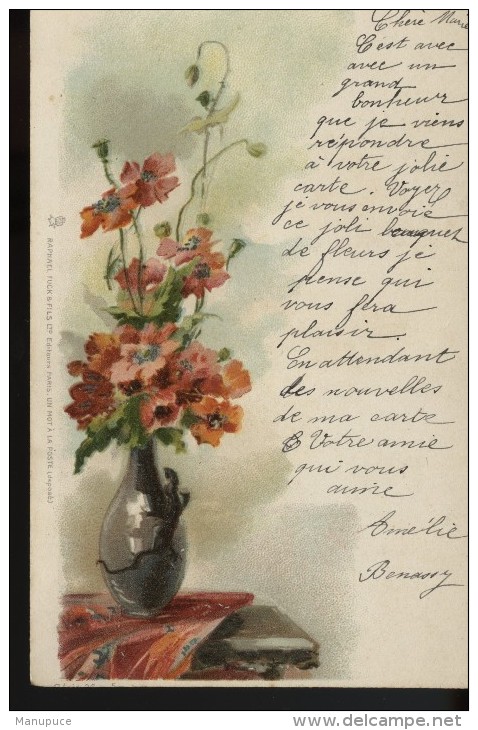 Chère Marie
C'est avec
avec un
grand
bonheur
que je viens
répondre
à votre jolie
carte. Voyez
je vous envoie
ce joli bouquet
de fleurs je
pense qui
vous fera
plaisir.
En attendant
des nouvelles
de ma carte
Votre amie
qui vous
aime
Amélie
Benassy
RAPHAEL TUCK & FILS LTD Editeurs PARIS. UN MOT À LA POSTE (déposé)
Manupuce
delcampe.net